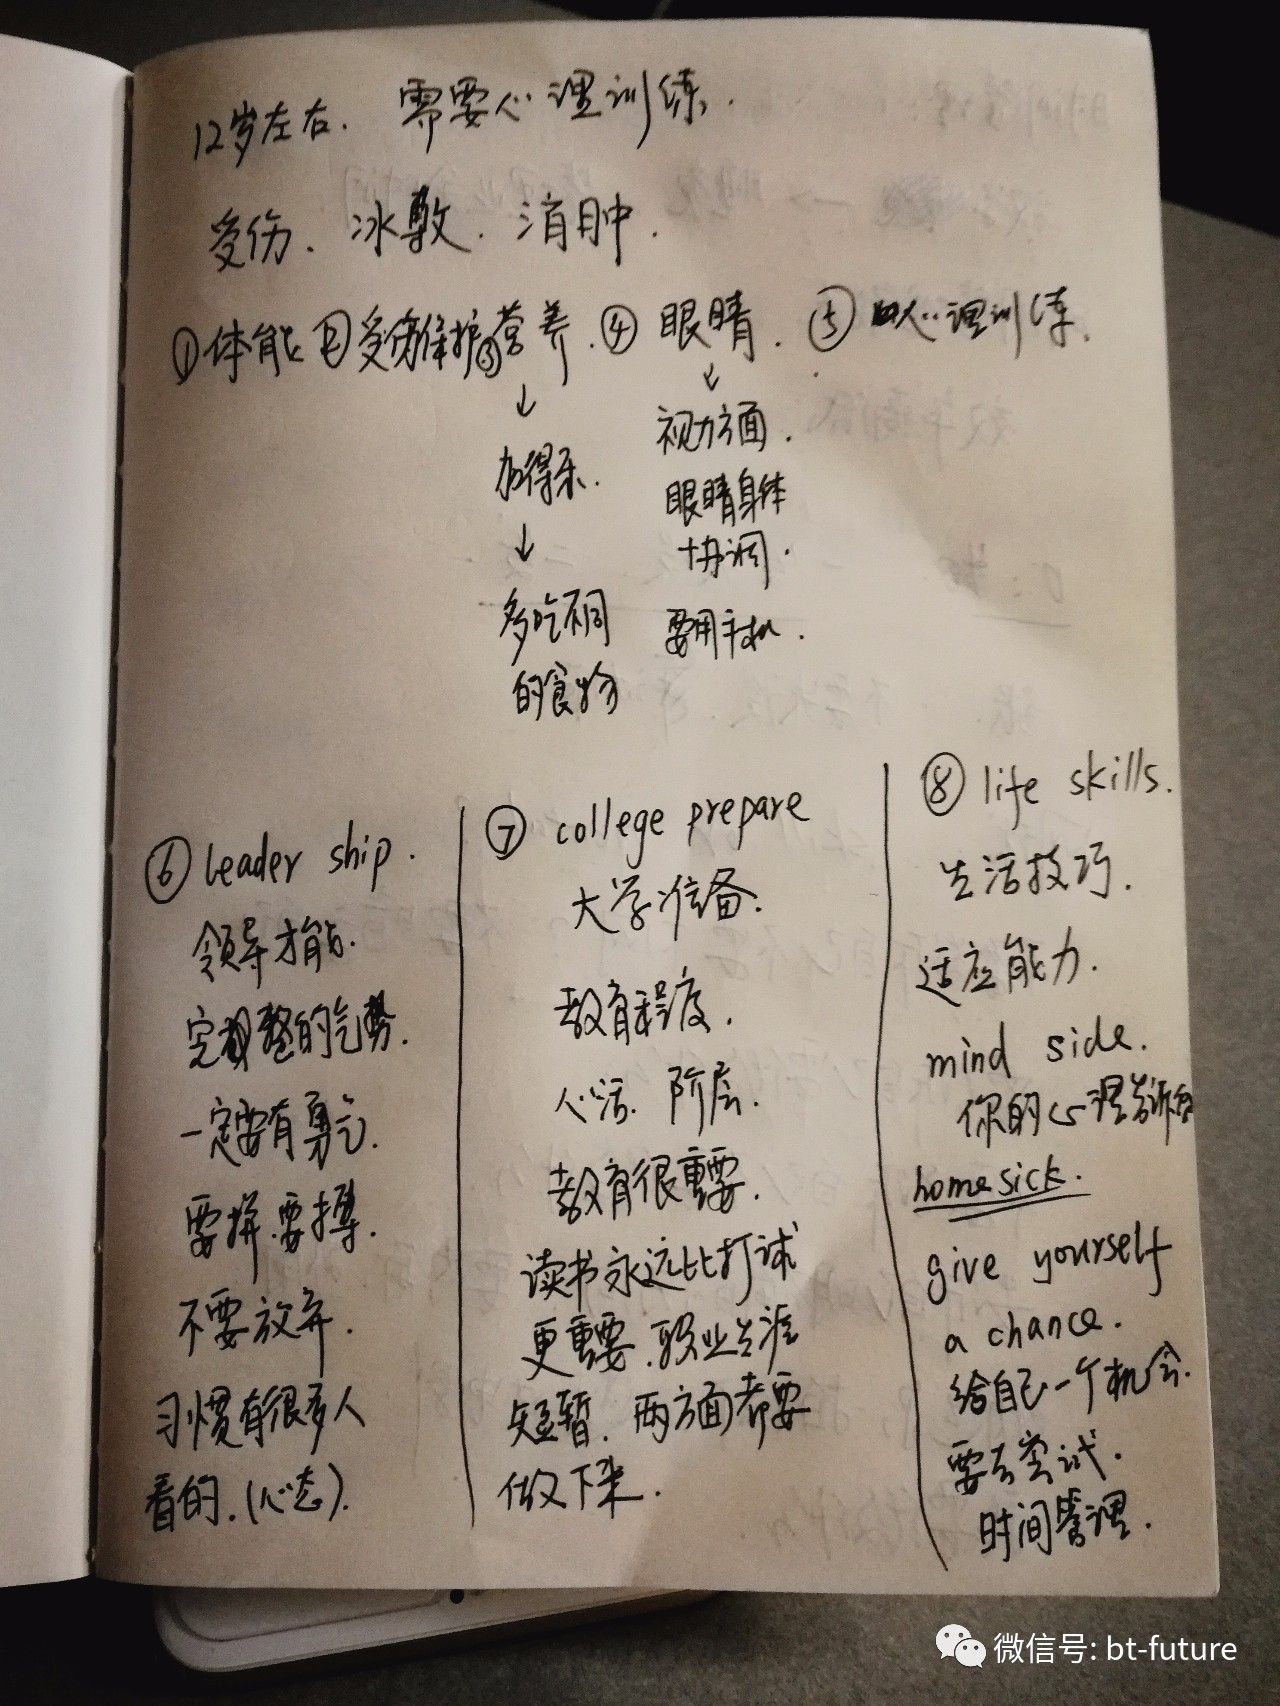 12岁左右. 需要心理训练.
受伤. 冰敷. 消肿.
①体能 ②受伤保护 ③营养. ④眼睛. ⑤心理训练.
↓
加得乐.
↓
多吃不同
的食物
↓
视力方面.
眼睛身体
协调.
要用手机.
⑥ leader ship.
领导才能.
完整的气势.
一定要有勇气.
要拼.要搏.
不要放弃.
习惯有很多人
看的.(心态).
⑦ college prepare
大学准备.
教育程度.
心活. 阶层.
教育很重要.
读书永远比打球
更重要.职业生涯
短暂. 两方面都要
做下来.
⑧ life skills.
生活技巧.
适应能力.
mind side.
你的心理告诉自
homesick.
give yourself
a chance.
给自己一个机会.
要去尝试.
时间管理.
微信号: bt-future